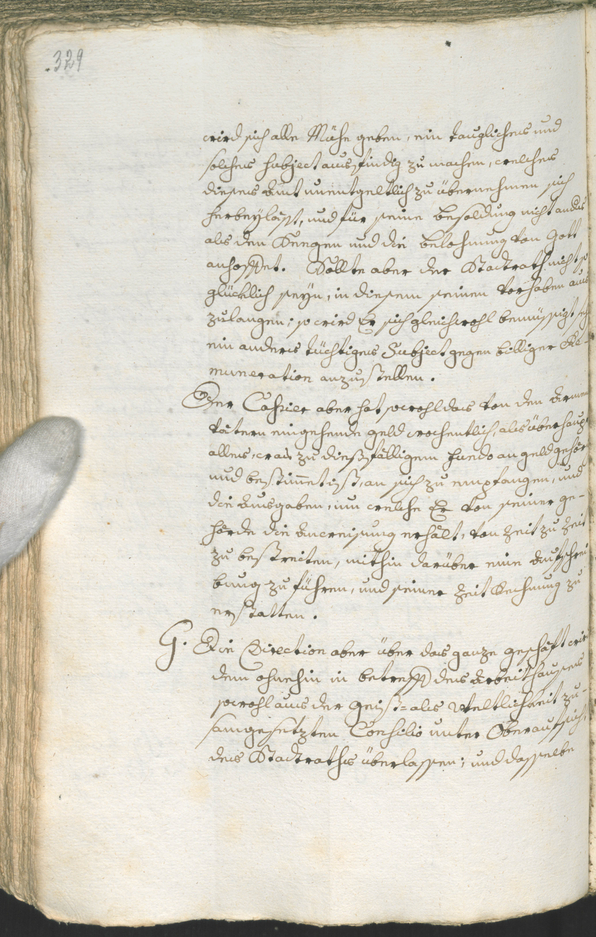 329
wird sich alle Mühe geben, ein taugliches und
solches Subject ausfindig zu machen, welches
dieses Amt unentgeltlich zu übernehmen sich
herbeyläst, und für seine besoldung nicht anders
als den Seegen und die belohnung von Gott
anhoffet. Sollte aber der Stadtrath nicht so
glücklich seyn, in diesem seinem Vorhaben aus
zulangen; so wird Er sich gleichwohl bemüssigt seh
ein anders tüchtiges Subject gegen billiger Re-
muneration anzustellen.
Der Cassier aber hat sowohl das von den
vätern eingehende geld wochentlich, als überhaupt
alles, was zu diesfälligem fundo an geld gehör
und bestimmt ist, an sich zu empfangen, und
die Ausgaben, um welche Er von seiner ge-
hörde die Anweisung erhält, von Zeit zu Zeit
zu bestreiten, mithin darüber eine Aufschrei
bung zu führen, und seiner Zeit Rechnung zu
erstatten.
G. Die Direction aber über das ganze geschäft wir
dem ohnehin in betreff des Arbeitshauses
sowohl aus der geist- als Weltlichkeit zu-
samgesetzten Consilio unter Oberaufsicht
des Stadtraths überlassen; und dasselbe